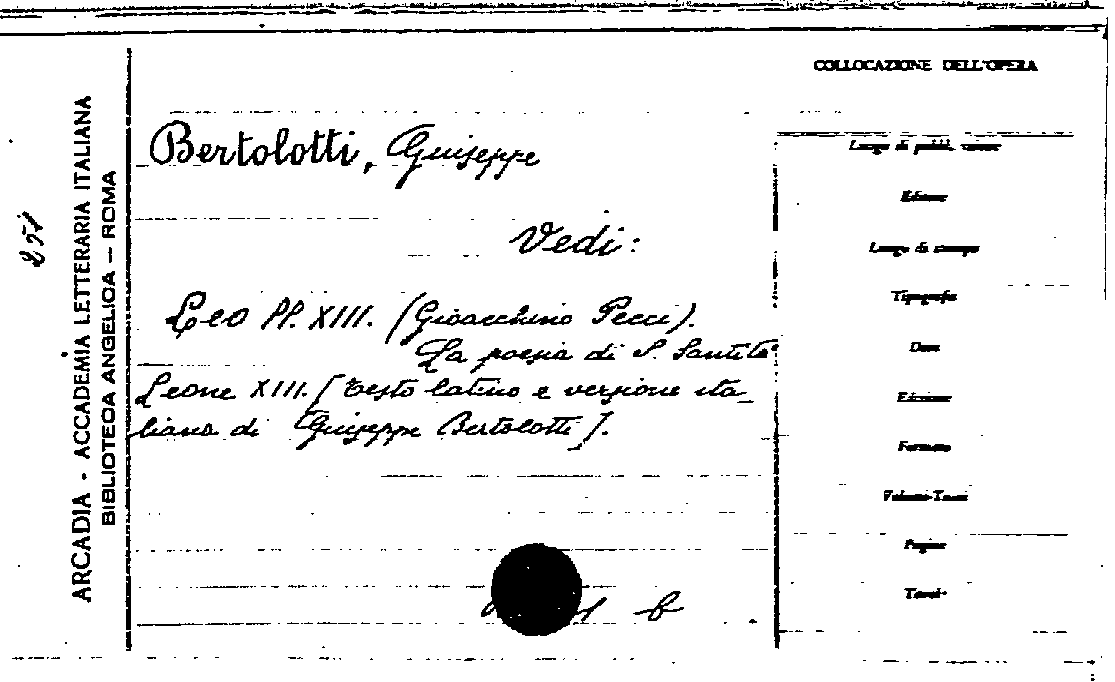 COLLOCAZIONE DELL'OPERA
ARCADIA - ACCADEMIA LETTERARIA ITALIANA
BIBLIOTECA ANGELICA — ROMA
251
Bertolotti, Giuseppe
Vedi:
Leo PP. XIII. (Gioacchino Pecci).
La poesia di S. Santità
Leone XIII. [Testo latino e versione ita_
liana di Giuseppe Bertolotti].
b
Luogo di pubbl.
Editore
Luogo di stampa
Tipografia
Data
Edizione
Formato
Volumi-Tomi
Pagine
Tavole